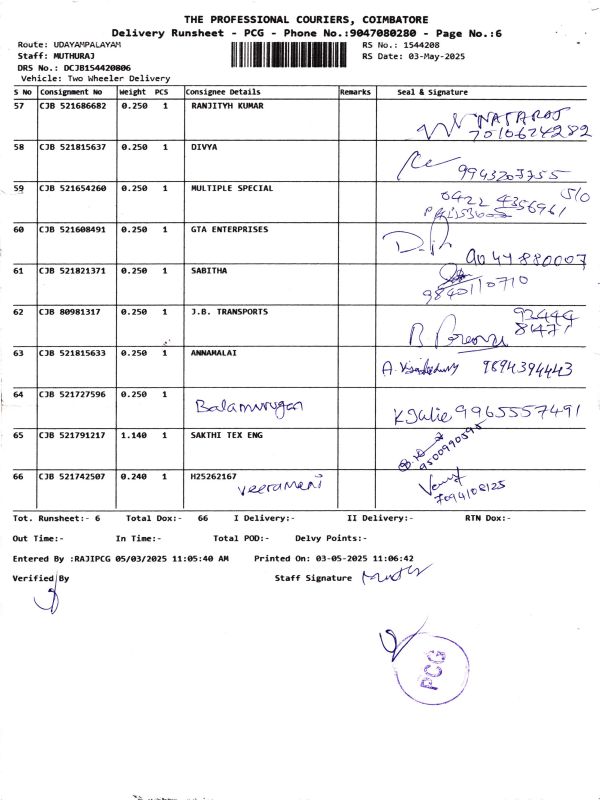 THE PROFESSIONAL COURIERS, COIMBATORE
Delivery Runsheet - PCG - Phone No.:9047080280 - Page No.:6
Route: UDAYAMPALAYAM RS No.: 1544208
Staff: MUTHURAJ RS Date: 03-May-2025
DRS No.: DCJB1544420806
Vehicle: Two Wheeler Delivery
S No Consignment No Weight PCS Consignee Details Remarks Seal & Signature
57 CJB 521686682 0.250 1 RANJITYH KUMAR
NATARAJ
7010624282
58 CJB 521815637 0.250 1 DIVYA
9943207755
59 CJB 521654260 0.250 1 MULTIPLE SPECIAL
0422 4356961 S/O
60 CJB 521608491 0.250 1 GTA ENTERPRISES
9047880007
61 CJB 521821371 0.250 1 SABITHA
9840110710
62 CJB 80981317 0.250 1 J.B. TRANSPORTS
92444
81471
63 CJB 521815633 0.250 1 ANNAMALAI
9894394443
64 CJB 521727596 0.250 1
Balamurugan K Julie 9965557491
65 CJB 521791217 1.140 1 SAKTHI TEX ENG
9500990595
66 CJB 521742507 0.240 1 H25262167
Veeramani
7094108125
Tot. Runsheet:- 6 Total Dox:- 66 I Delivery:- II Delivery:- RTN Dox:-
Out Time:- In Time:- Total POD:- Delvy Points:-
Entered By :RAJIPCG 05/03/2025 11:05:40 AM Printed On: 03-05-2025 11:06:42
Verified By Staff Signature
PCG